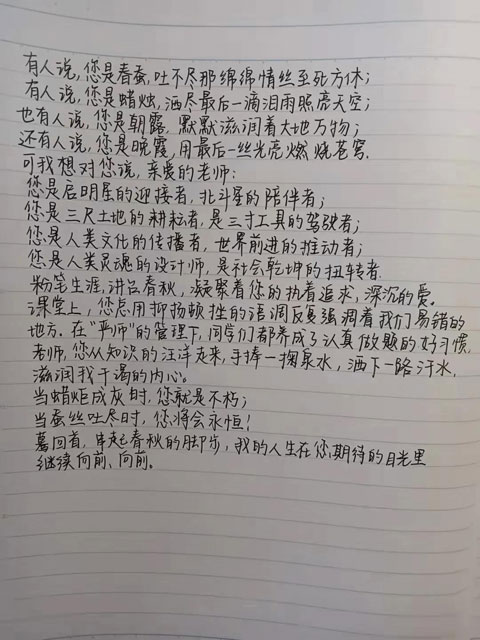 有人说,您是春蚕,吐不尽那绵绵情丝至死方休;
有人说,您是蜡烛,洒尽最后一滴泪雨照亮天空;
也有人说,您是朝露,默默滋润着大地万物;
还有人说,您是晚霞,用最后一丝光亮燃烧苍穹.
可我想对您说,亲爱的老师:
您是启明星的迎接者,北斗星的陪伴者;
您是三尺土地的耕耘者,是三寸工具的驾驶者;
您是人类文化的传播者,世界前进的推动者;
您是人类灵魂的设计师,是社会乾坤的扭转者.
粉笔生涯,讲台春秋,凝聚着您的执着追求,深沉的爱.
课堂上,您总用抑扬顿挫的语调反复强调着我们易错的
地方.在“严师”的管理下,同学们都养成了认真做题的好习惯.
老师,您从知识的汪洋走来,手捧一掬泉水,洒下一路汗水,
滋润我干渴的内心。
当蜡炬成灰时,您就是不朽;
当蚕丝吐尽时,您将会永恒!
蓦回首,串起春秋的脚步,我的人生在您期待的目光里
继续向前、向前。